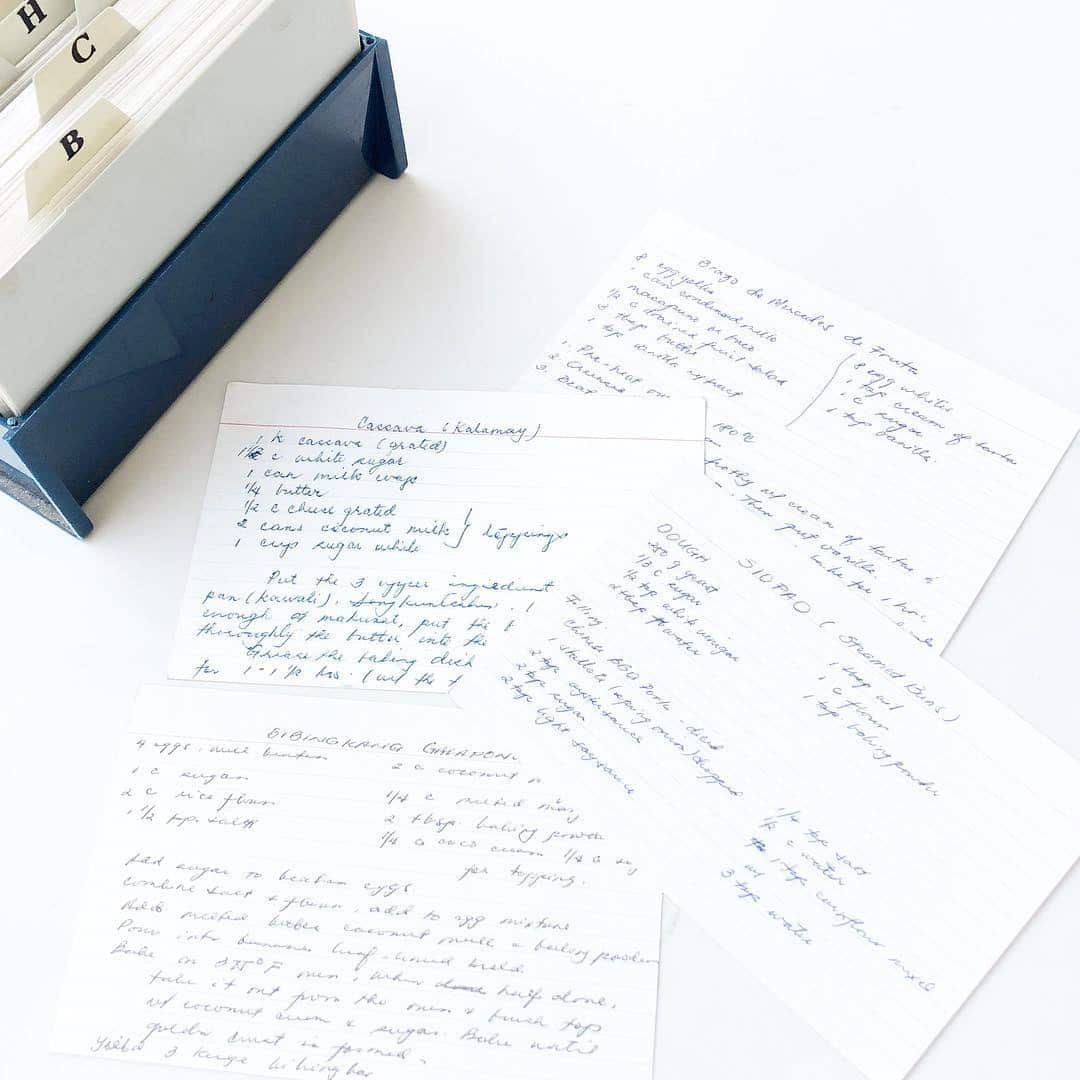 H
C
B
Brazo de Mercedes de Fruta
8 egg yolks
1 can condensed milk
macapuno or buco
1/2 c drained fruit salad
3 tbsp butter
1 tsp vanilla extract
8 egg whites
1 tsp cream of tarta
1 c sugar
1 tsp vanilla.
1. Pre-heat
2.
3. Beat
180°C
frothy w/ cream of tartar &
. Then put vanilla.
bake for 1 hr.
Cassava (Kalamay)
1 k cassava (grated)
1 1/2 c white sugar
1 can milk evap
1/4 butter
1/2 c cheese grated
2 cans coconut milk } toppings
1 cup sugar white
Put the 3 upper ingredient
pan (kawali).
enough of material, put the
thoroughly the butter into the
Grease the baking dish
for 1 - 1 1/2 hrs. (until the
SIOPAO (Steamed Buns)
DOUGH
250 g yeast
1/3 c sugar
1/2 tsp white vinegar
2 tbsp water
1 tbsp oil
1 c flour
1 tsp baking powder
Filling
Chinese BBQ Pork - diced
1 shallots (spring onion) chopped
2 tsp oyster sauce
2 tsp sugar
2 tsp light soysauce
1/4 tsp salt
1/2 c water
1 tsp cornflour mixed
w/
3 tsp water
BIBINGKANG GALAPONG
4 eggs - well beaten
1 c sugar
2 c rice flour
1 1/2 tsp. salt
2 c coconut
1/4 c melted marg
2 tbsp. baking powder
1/4 c coco cream 1/4 c su
for topping.
Add sugar to beaten eggs
Combine salt & flour, add to egg mixture
Add melted butter coconut milk & baking powder
Pour into bananas leaf-lined mold
Bake in 375°F oven, when half done,
take it out from the oven & brush top
w/ coconut cream & sugar. Bake until
golden crust is formed.
Yields 3 large bibingkas